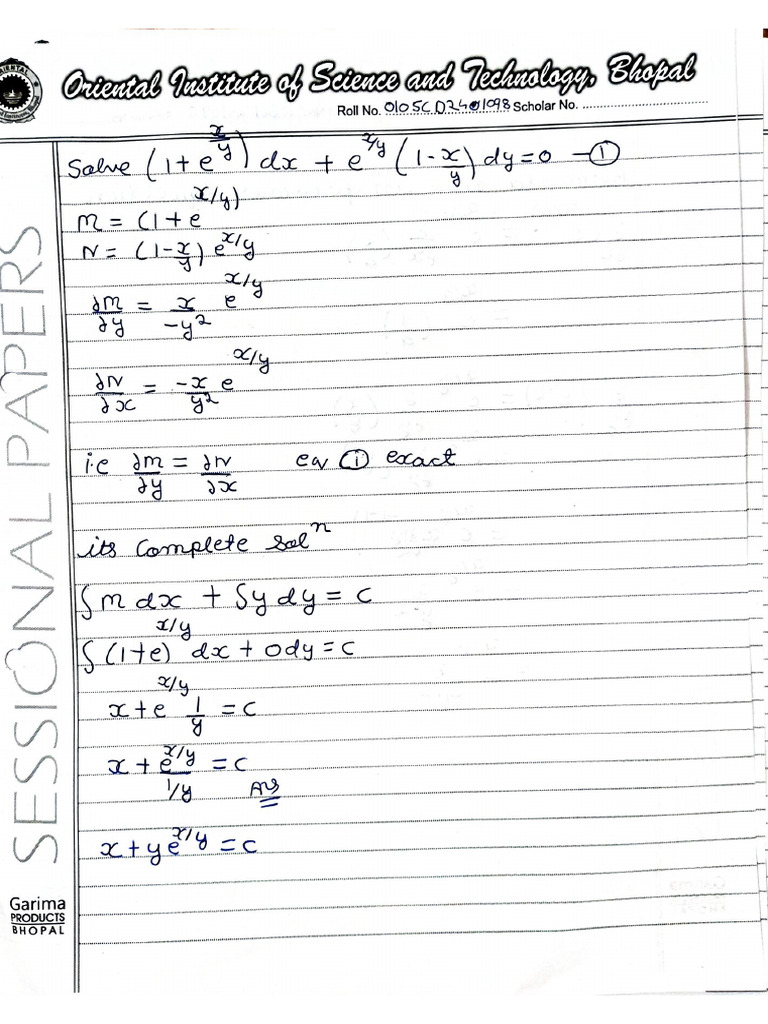 Oriental Institute of Science and Technology, Bhopal
Roll No. 0105CD241098 Scholar No.
Solve (1+e^x/y) dx + e^x/y (1-x/y) dy=0 -①
m = (1+e^x/y)
N = (1-x/y) e^x/y
∂m/∂y = x/-y² e^x/y
∂N/∂x = -x/y² e^x/y
i.e ∂m/∂y = ∂N/∂x eq ① exact
its complete solⁿ
∫m dx + ∫y dy = c
∫(1+e)^x/y dx + 0dy=c
x+e^x/y 1/y = c
x + e^x/y/1/y = c Ans
x + ye^x/y = c
SESSIONAL PAPERS
Garima
PRODUCTS
BHOPAL